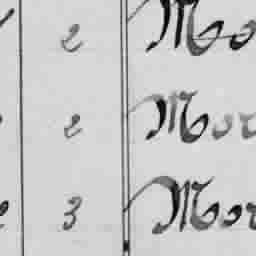 2 Mo
2 Mor
3 Mor